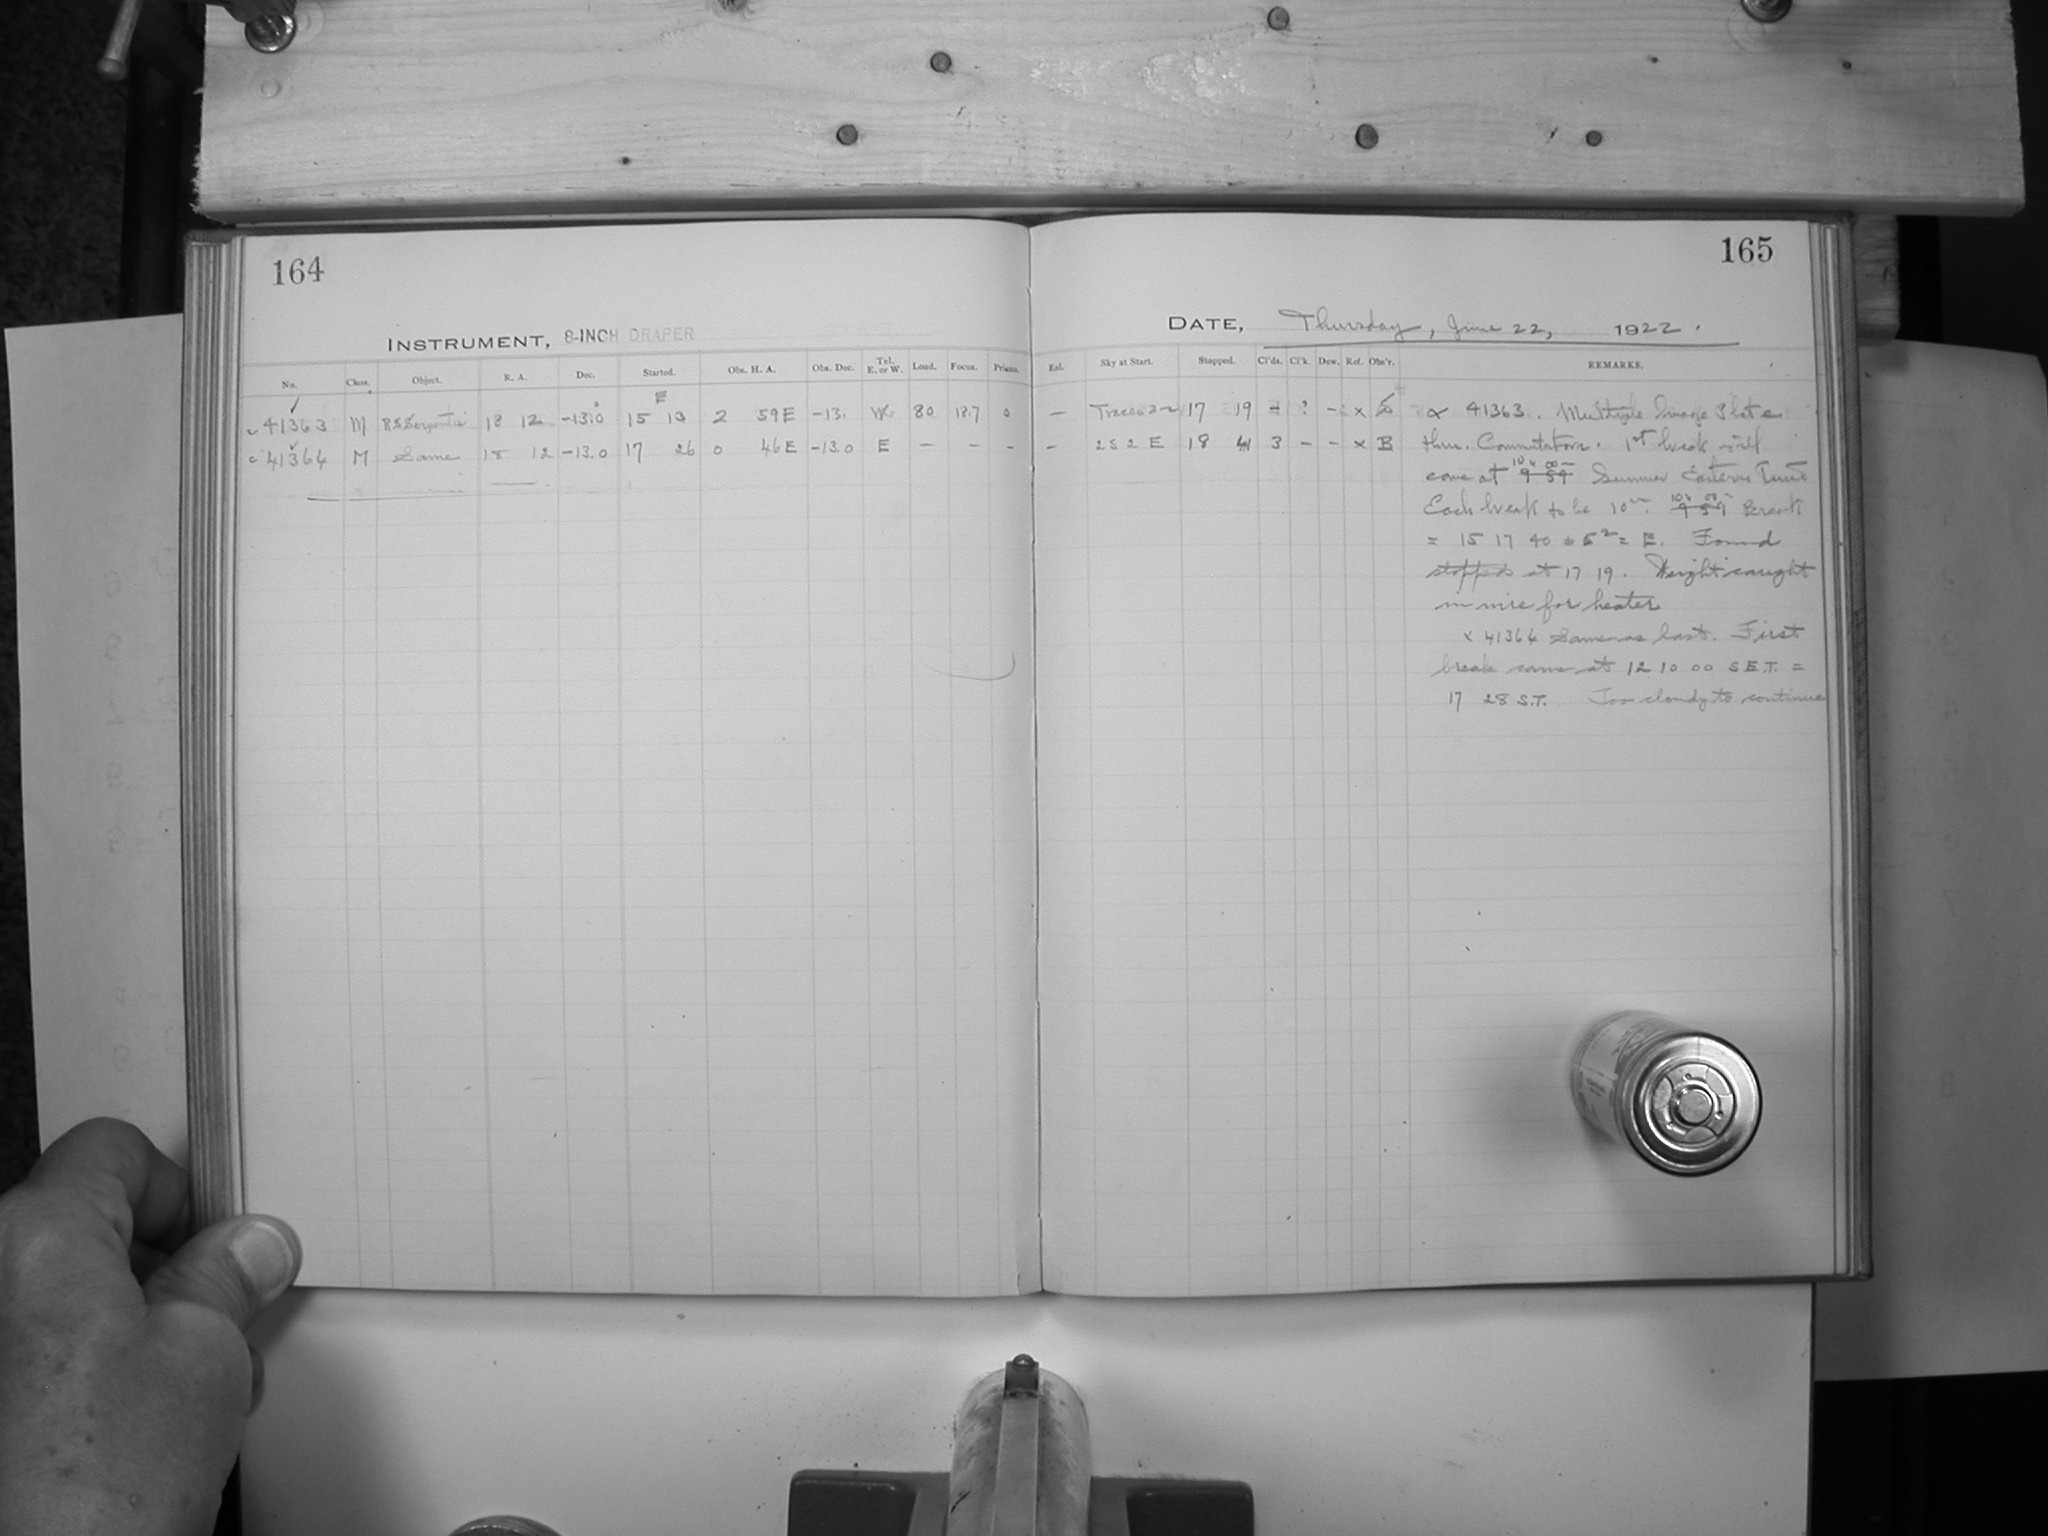 164
165
INSTRUMENT, 8-INCH DRAPER
DATE, Thursday, June 22, 1922.
No. Class. Object. R. A. Dec. Started. Obs. H. A. Obs. Dec. Tel. E. or W. Load. Focus. Prisms. Exl. Sky at Start. Stopped. Cl'ds. Cl'k. Dew. Ref. Obs'r. REMARKS.
E
41363 M RS Serpentis 18 12 -13.0 15 13 2 59 E -13. W 80 18.7 0 — Traces 17 19 - ? - x
41364 M Same 18 12 -13.0 17 26 0 46 E -13.0 E — — — — 2 S 2 E 18 41 3 — — x B
x 41363. Multiple Image Plate
thru. Commutator. 1st break will
come at 9 59 10h 00m Summer Eastern Time
Each break to be 10m. 9 59 10h 00m Break
= 15 17 40 = E. Found
stopped at 17 19. Weight caught
in wire for heater
x 41364 Same as last. First
break came at 12 10 00 S.E.T. =
17 28 S.T. Too cloudy to continue